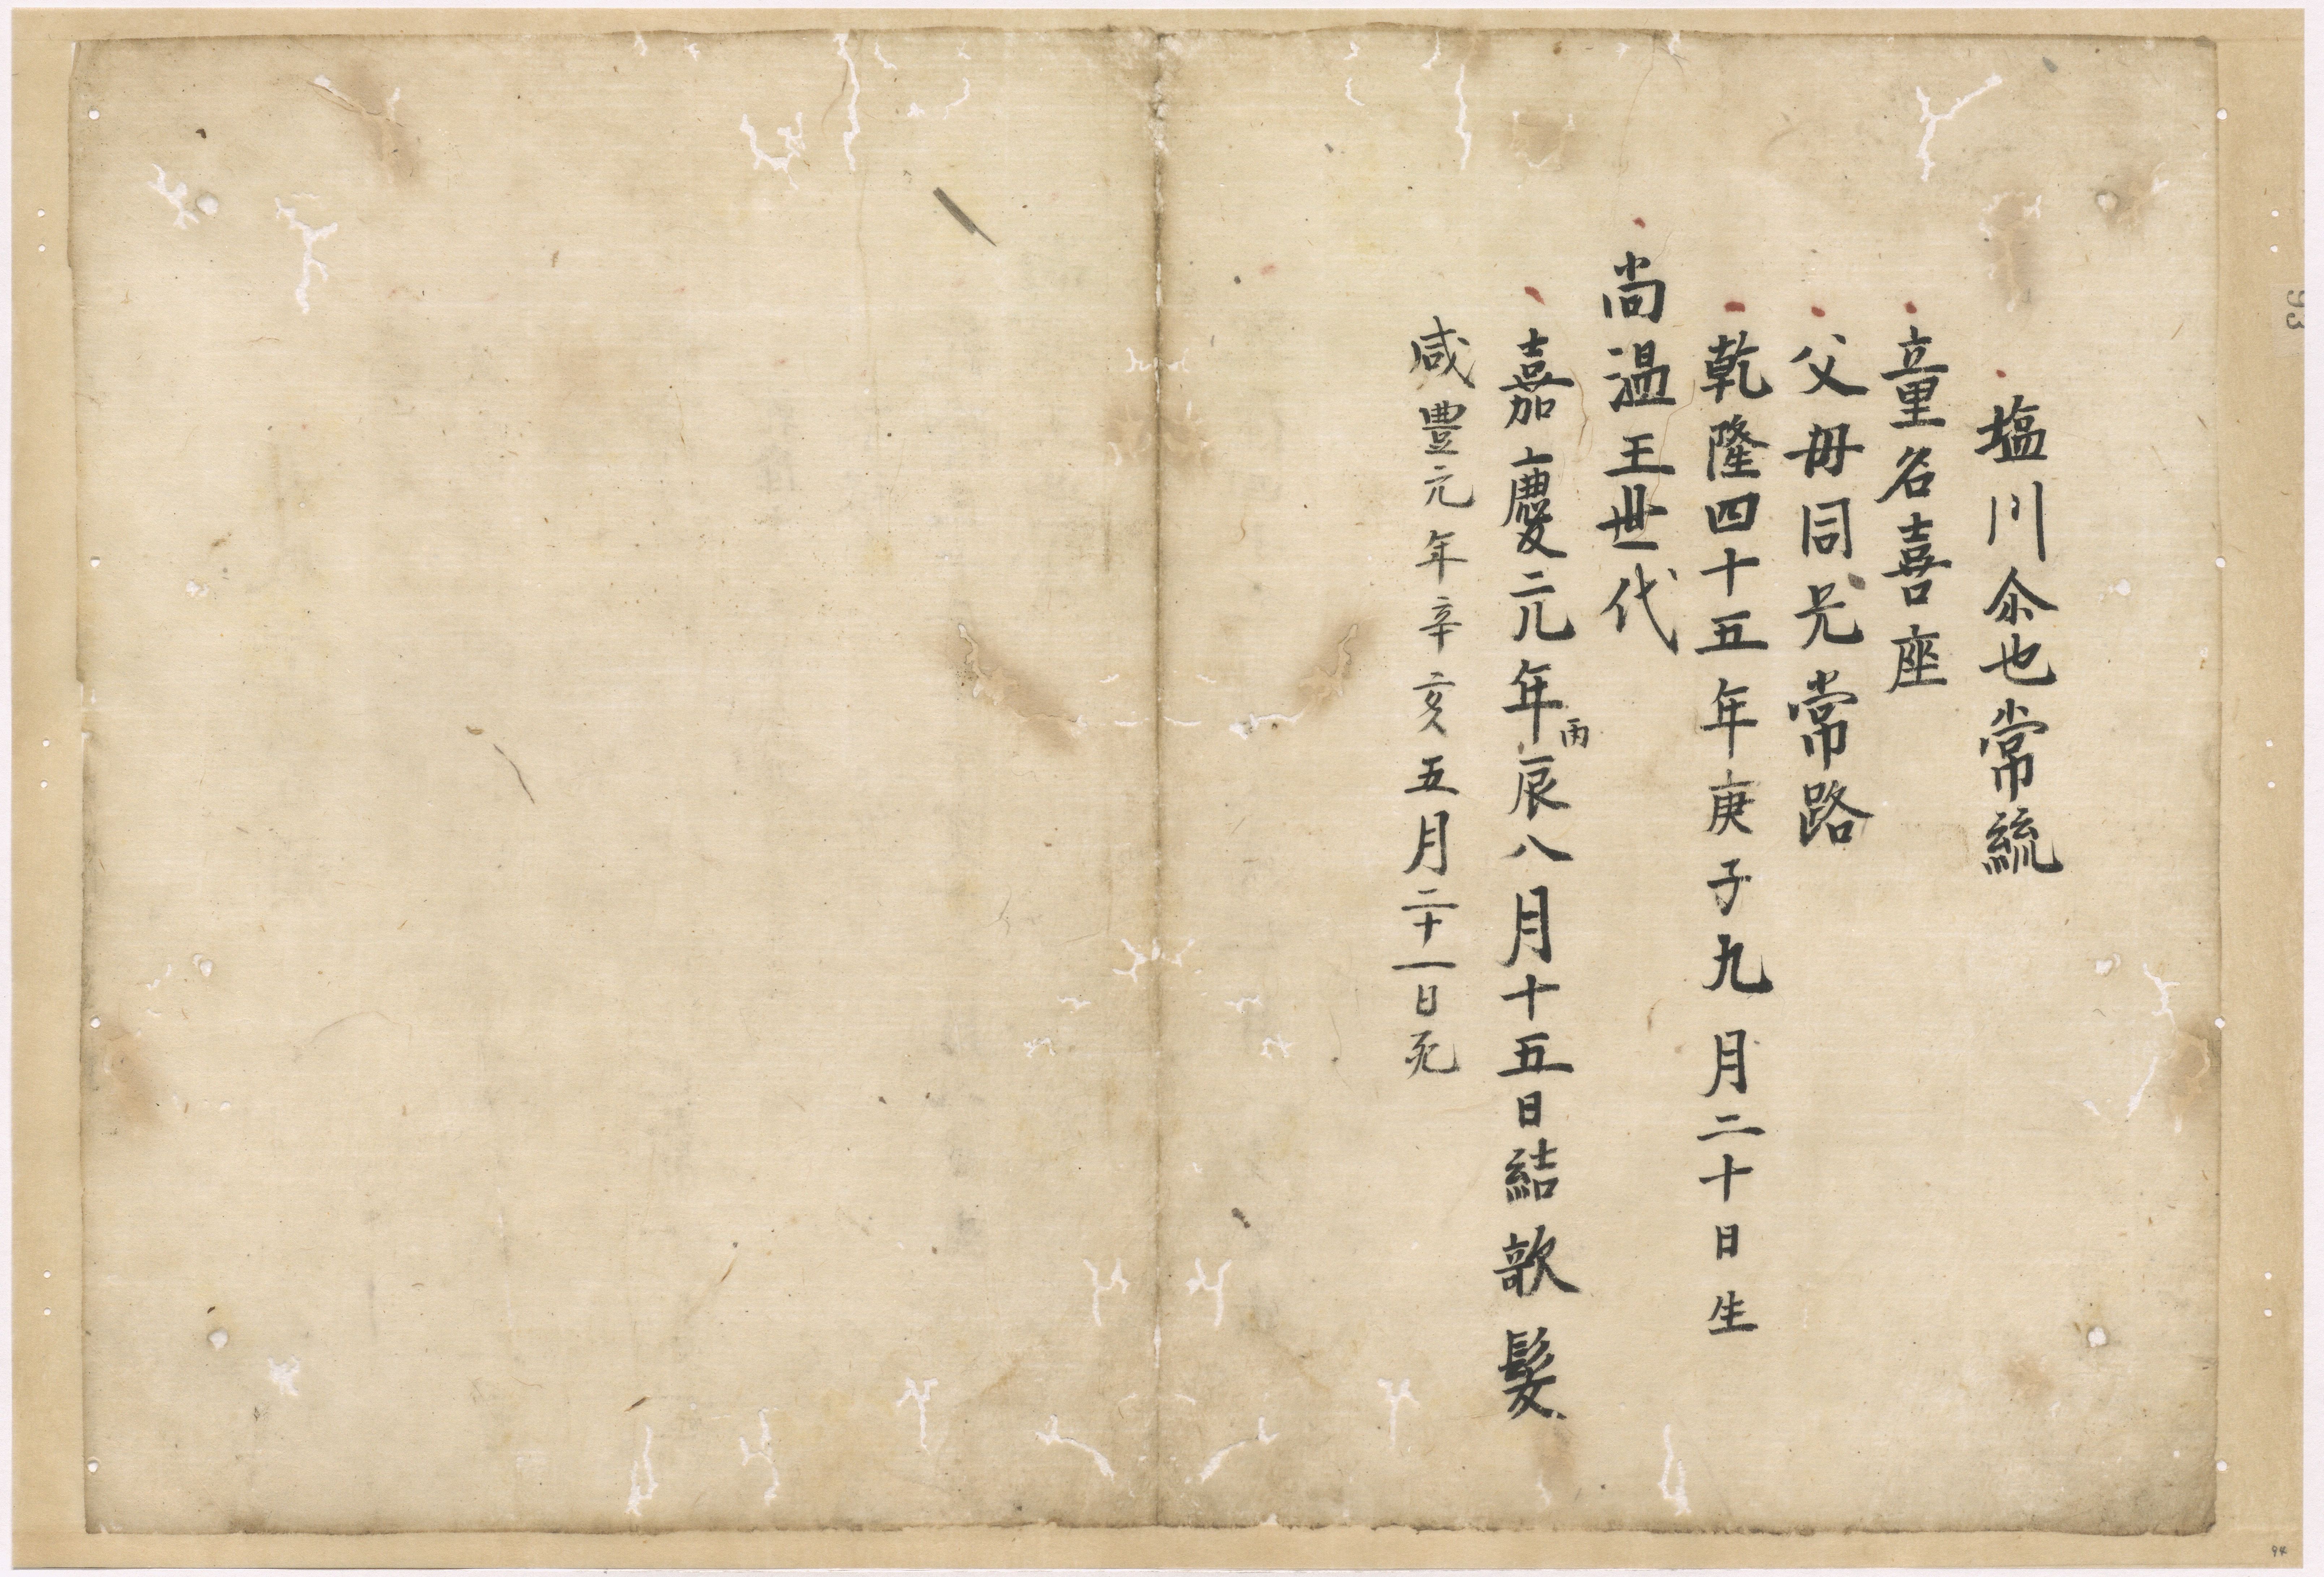 塩川尒也常統
童名喜座
父母同兄常路
乾隆四十五年庚子九月二十日生
尚温王世代
嘉慶元年丙辰八月十五日結欹髪
咸豊元年辛亥五月二十一日死
93
94